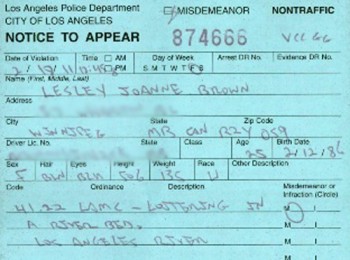 Los Angeles Police Department
CITY OF LOS ANGELES
NOTICE TO APPEAR
MISDEMEANOR NONTRAFFIC
874666
Date of Violation Time AM PM Day of Week Arrest DR No. Evidence DR No.
S M T W T F S
Name (First, Middle, Last)
LESLEY JOANNE BROWN
Address
City State Zip Code
WINNIPEG MB CAN R2Y 0S9
Driver Lic. No. State Class Age Birth Date
25 2/12/86
Sex Hair Eyes Height Weight Race Other Description
F BLN BLN 506 135 W
Code Ordinance Description Misdemeanor or
Infraction (Circle)
41.22 LAMC - LOITERING IN M
A RIVER BED. M I
LOS ANGELES RIVER M I
M